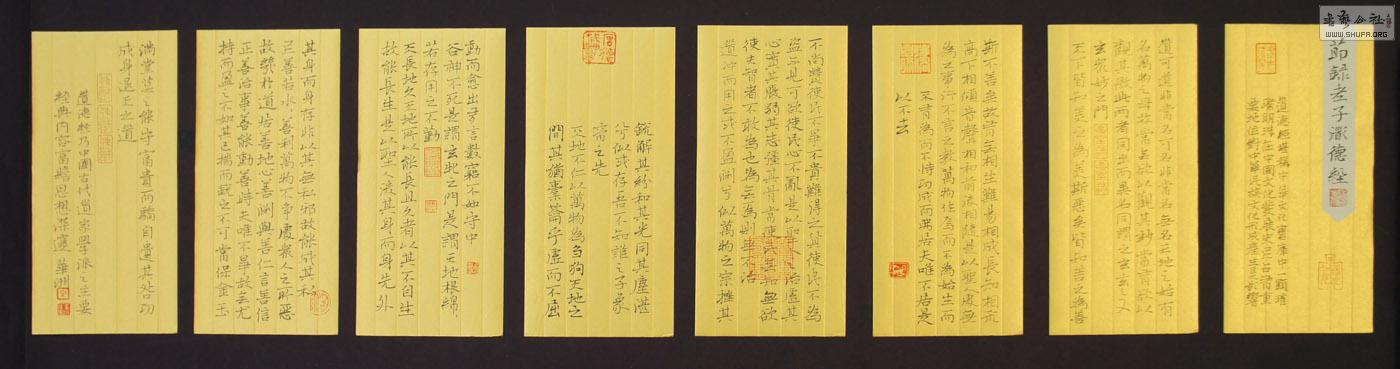 书法公社
WWW.SHUFA.ORG
節録老子道德經
道德經堪稱中華文化寶庫中一顆璀
璨明珠在中國文化發展史上占有重
要地位對中華民族文化形成産生巨大影響
道可道非常名可名非常名無名天地之始有
名萬物之母故常無欲以觀其妙常有欲以
觀其徼此兩者同出而異名同謂之玄玄之又
玄衆妙之門
天下皆知美之為美斯惡矣皆知善之為善
斯不善矣故有無相生難易相成長短相形
高下相傾音聲相和前後相隨是以聖人處無
為之事行不言之教萬物作焉而不為始生而
不有為而不恃功成而弗居夫唯不居是
以不去
不尚賢使民不爭不貴難得之貨使民不為
盗不見可欲使民心不亂是以聖人之治虛其
心實其腹弱其志强其骨常使民無知無欲
使夫智者不敢為也為無為則無不治
道沖而用之或不盈淵兮似萬物之宗挫其
銳解其紛和其光同其塵湛
兮似或存吾不知誰之子象
帝之先
天地不仁以萬物為芻狗天地之
間其猶橐籥乎虛而不屈
動而愈出多言數窮不如守中
谷神不死是謂玄牝之門是謂天地根綿綿
若存用之不勤
天長地久天地所以能長且久者以其不自生
故能長生是以聖人後其身而身先外
其身而身存非以其無私邪故能成其私
上善若水水善利萬物不争處衆人之所惡
故幾於道居善地心善淵與善仁言善信
正善治事善能動善時夫唯不爭故無尤
持而盈之不如其已揣而銳之不可常保金玉
滿堂莫之能守富貴而驕自遺其咎功
成身退天之道
道德經乃中國古代道家學派之主要
經典内容富贍思想深邃 華洲